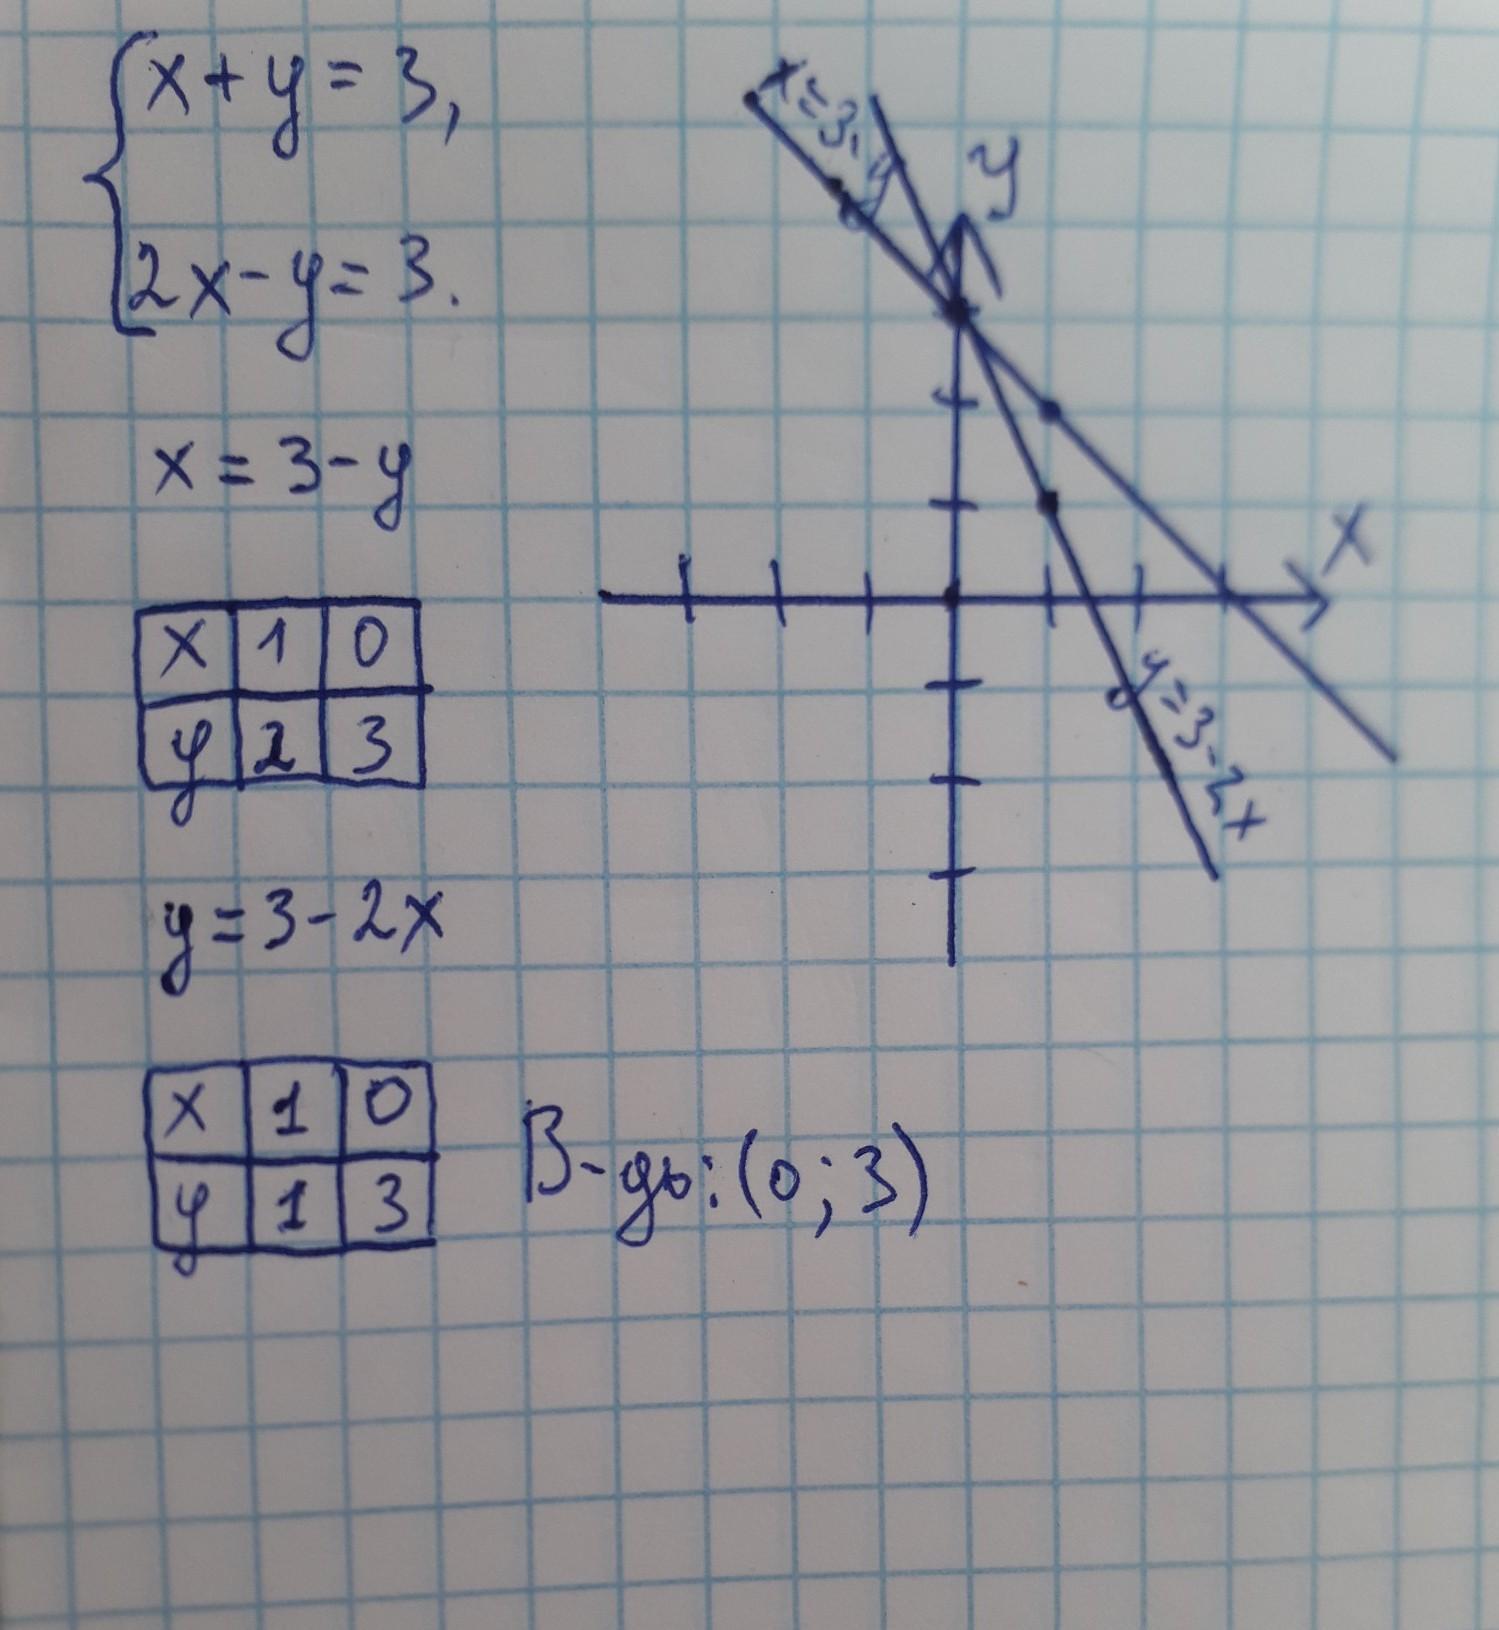 x + y = 3,
2x - y = 3.
x = 3 - y
x 1 0
y 2 3
y = 3 - 2x
x 1 0
y 1 3
В-дь: (0; 3)
x = 3 - y
y
x
y = 3 - 2x